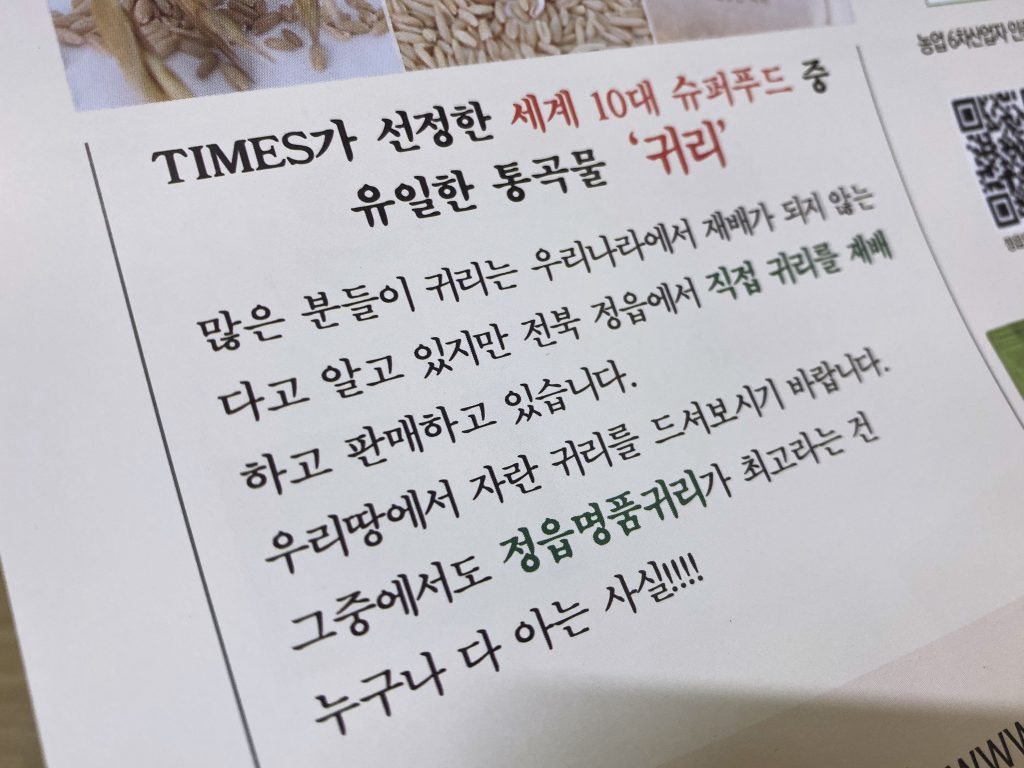 TIMES가 선정한 세계 10대 슈퍼푸드 중
유일한 통곡물 '귀리'
많은 분들이 귀리는 우리나라에서 재배가 되지 않는
다고 알고 있지만 전북 정읍에서 직접 귀리를 재배
하고 판매하고 있습니다.
우리땅에서 자란 귀리를 드셔보시기 바랍니다.
그중에서도 정읍명품귀리가 최고라는 건
누구나 다 아는 사실!!!!
농업 6차산업자
www